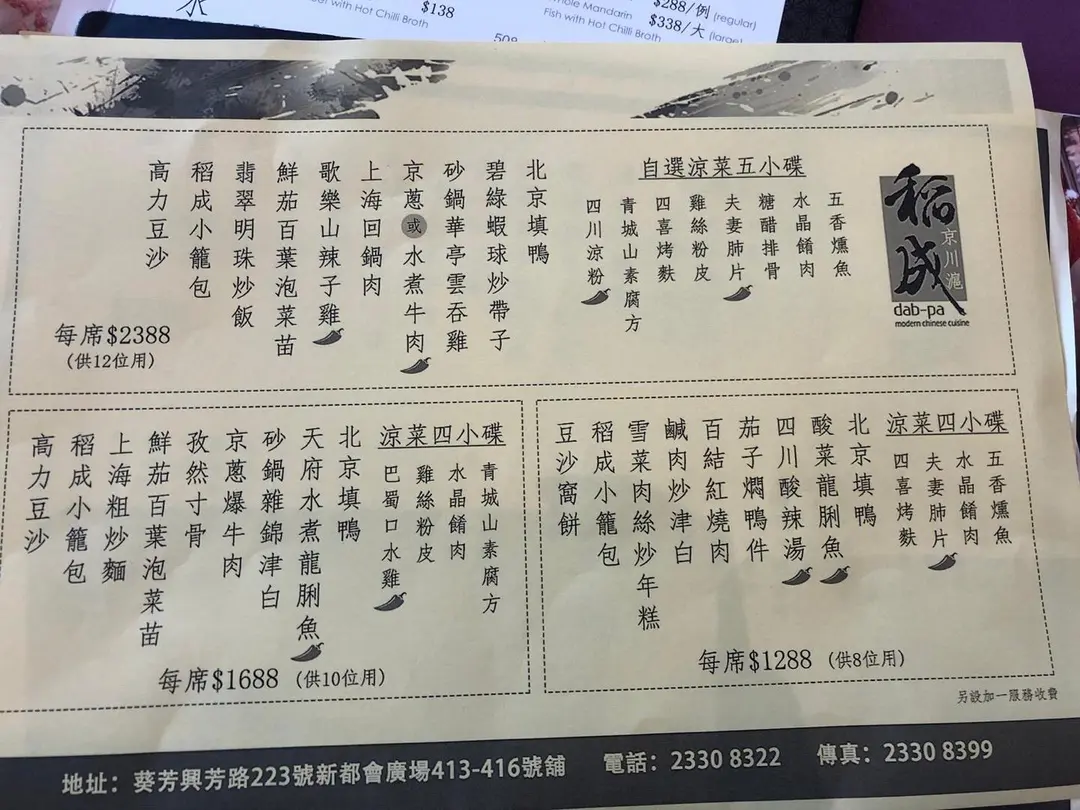 水
with Hot Chilli Broth
$138
508
Whole Mandarin
Fish with Hot Chilli Broth
$288/例 (regular)
$338/大 (large)
稻成
京川滬
dab-pa
modern chinese cuisine
自選涼菜五小碟
五香燻魚
水晶餚肉
糖醋排骨
夫妻肺片
雞絲粉皮
四喜烤麩
青城山素腐方
四川涼粉
北京填鴨
碧綠蝦球炒帶子
砂鍋華亭雲吞雞
京蔥或水煮牛肉
上海回鍋肉
歌樂山辣子雞
鮮茄百葉泡菜苗
翡翠明珠炒飯
稻成小籠包
高力豆沙
每席$2388
(供12位用)
涼菜四小碟
五香燻魚
水晶餚肉
夫妻肺片
四喜烤麩
北京填鴨
酸菜龍脷魚
四川酸辣湯
茄子燜鴨件
百結紅燒肉
鹹肉炒津白
雪菜肉絲炒年糕
稻成小籠包
豆沙窩餅
每席$1288 (供8位用)
涼菜四小碟
青城山素腐方
水晶餚肉
雞絲粉皮
巴蜀口水雞
北京填鴨
天府水煮龍脷魚
砂鍋雜錦津白
京蔥爆牛肉
孜然寸骨
鮮茄百葉泡菜苗
上海粗炒麵
稻成小籠包
高力豆沙
每席$1688 (供10位用)
另設加一服務收費
地址：葵芳興芳路223號新都會廣場413-416號舖 電話：2330 8322 傳真：2330 8399